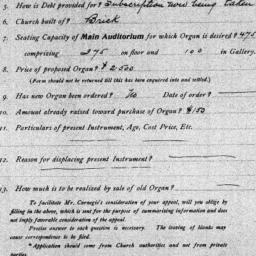 5. How is Debt provided for? Subscription now being taken
6. Church built of? Brick
7. Seating Capacity of Main Auditorium for which Organ is desired? 475
comprising 375 on floor and 100 in Gallery.
8. Price of proposed Organ? $2500
(Form should not be returned till this has been enquired into and settled.)
9. Has new Organ been ordered? No Date of order?
10. Amount already raised toward purchase of Organ? $150
11. Particulars of present Instrument, Age, Cost Price, Etc.
12. Reason for displacing present Instrument?
13. How much is to be realized by sale of old Organ?
To facilitate Mr. Carnegie's consideration of your appeal, will you oblige by
filling in the above, which is sent for the purpose of summarising information and does
not imply favorable consideration of the appeal.
Precise answer to each question is necessary. The leaving of blanks may
cause correspondence to be filed.
*Application should come from Church authorities and not from private
parties